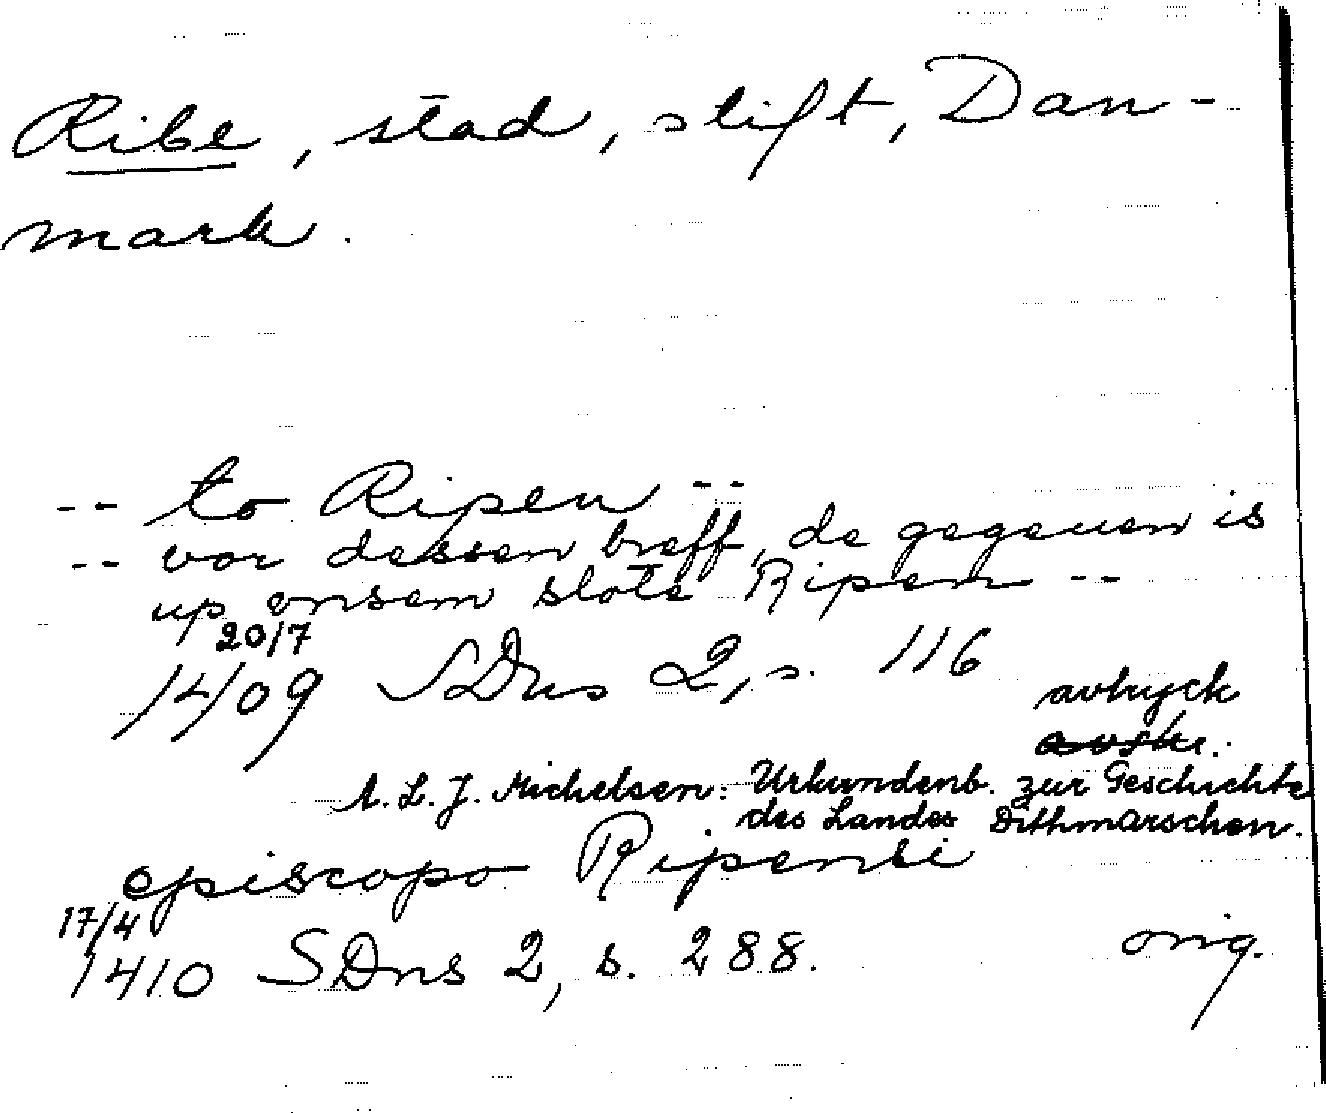 Ribe, stad, stift, Dan-
mark.
-- to Ripen --
-- vor dessen breff, de gegeuen is
up vnsem slote Ripen --
20/7
1409 SDns 2, s. 116
avtryck
A. L. J. Michelsen: Urkundenb. zur Geschichte
des Landes Dithmarschen.
episcopo Ripensi
17/4
1410 SDns 2, s. 288.
orig.